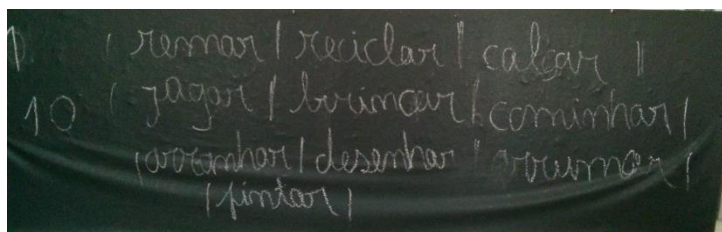 1 | remar | reciclar | calçar ||
10 | jagar | brincar | caminhar |
| arranhar | desenhar | arrumar |
| pintar |